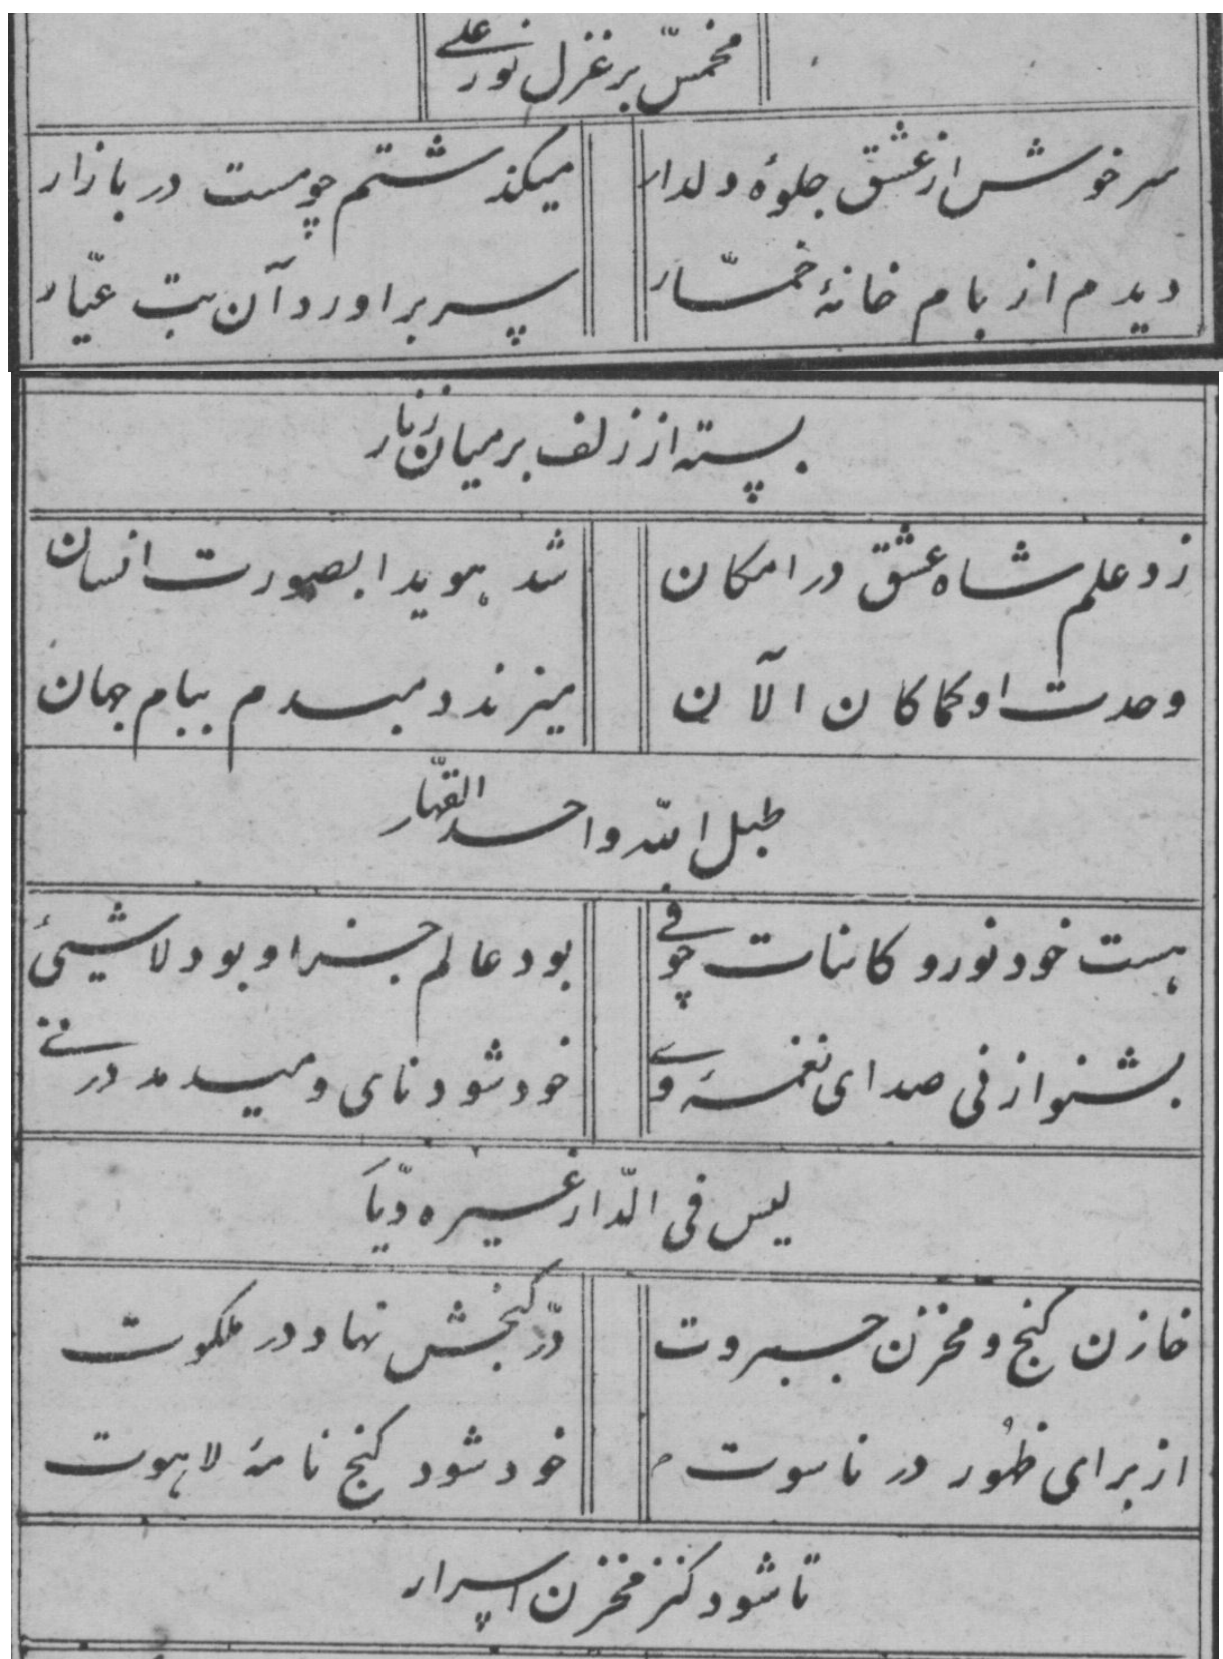 مخمّس بر غزل نور علی
سرخوش از عشق جلوهٔ دلدار میکذشتم چو مست در بازار
دیدم از بام خانهٔ خمّار سر براورد آن بت عیّار
بسته از زلف بر میان زنار
زد علم شاه عشق در امکان شد هویدا بصورت انسان
وحدت او کماکان الآن میزند دمبدم ببام جهان
طبل الله واحد القهّار
هست خود نور و کائنات چو فی بود عالم جز او بود لا شیئ
بشنو از فی صدای نغمهٔ وی خود شود نای و میدمد در نی
لیس فی الدّار غیره دیّا
خازن کنج و مخزن جبروت درّ کنجش نهاد در ملکوت
از برای ظهور در ناسوت خود شود کنج نامهٔ لاهوت
تا شود کنز مخزن اسرار